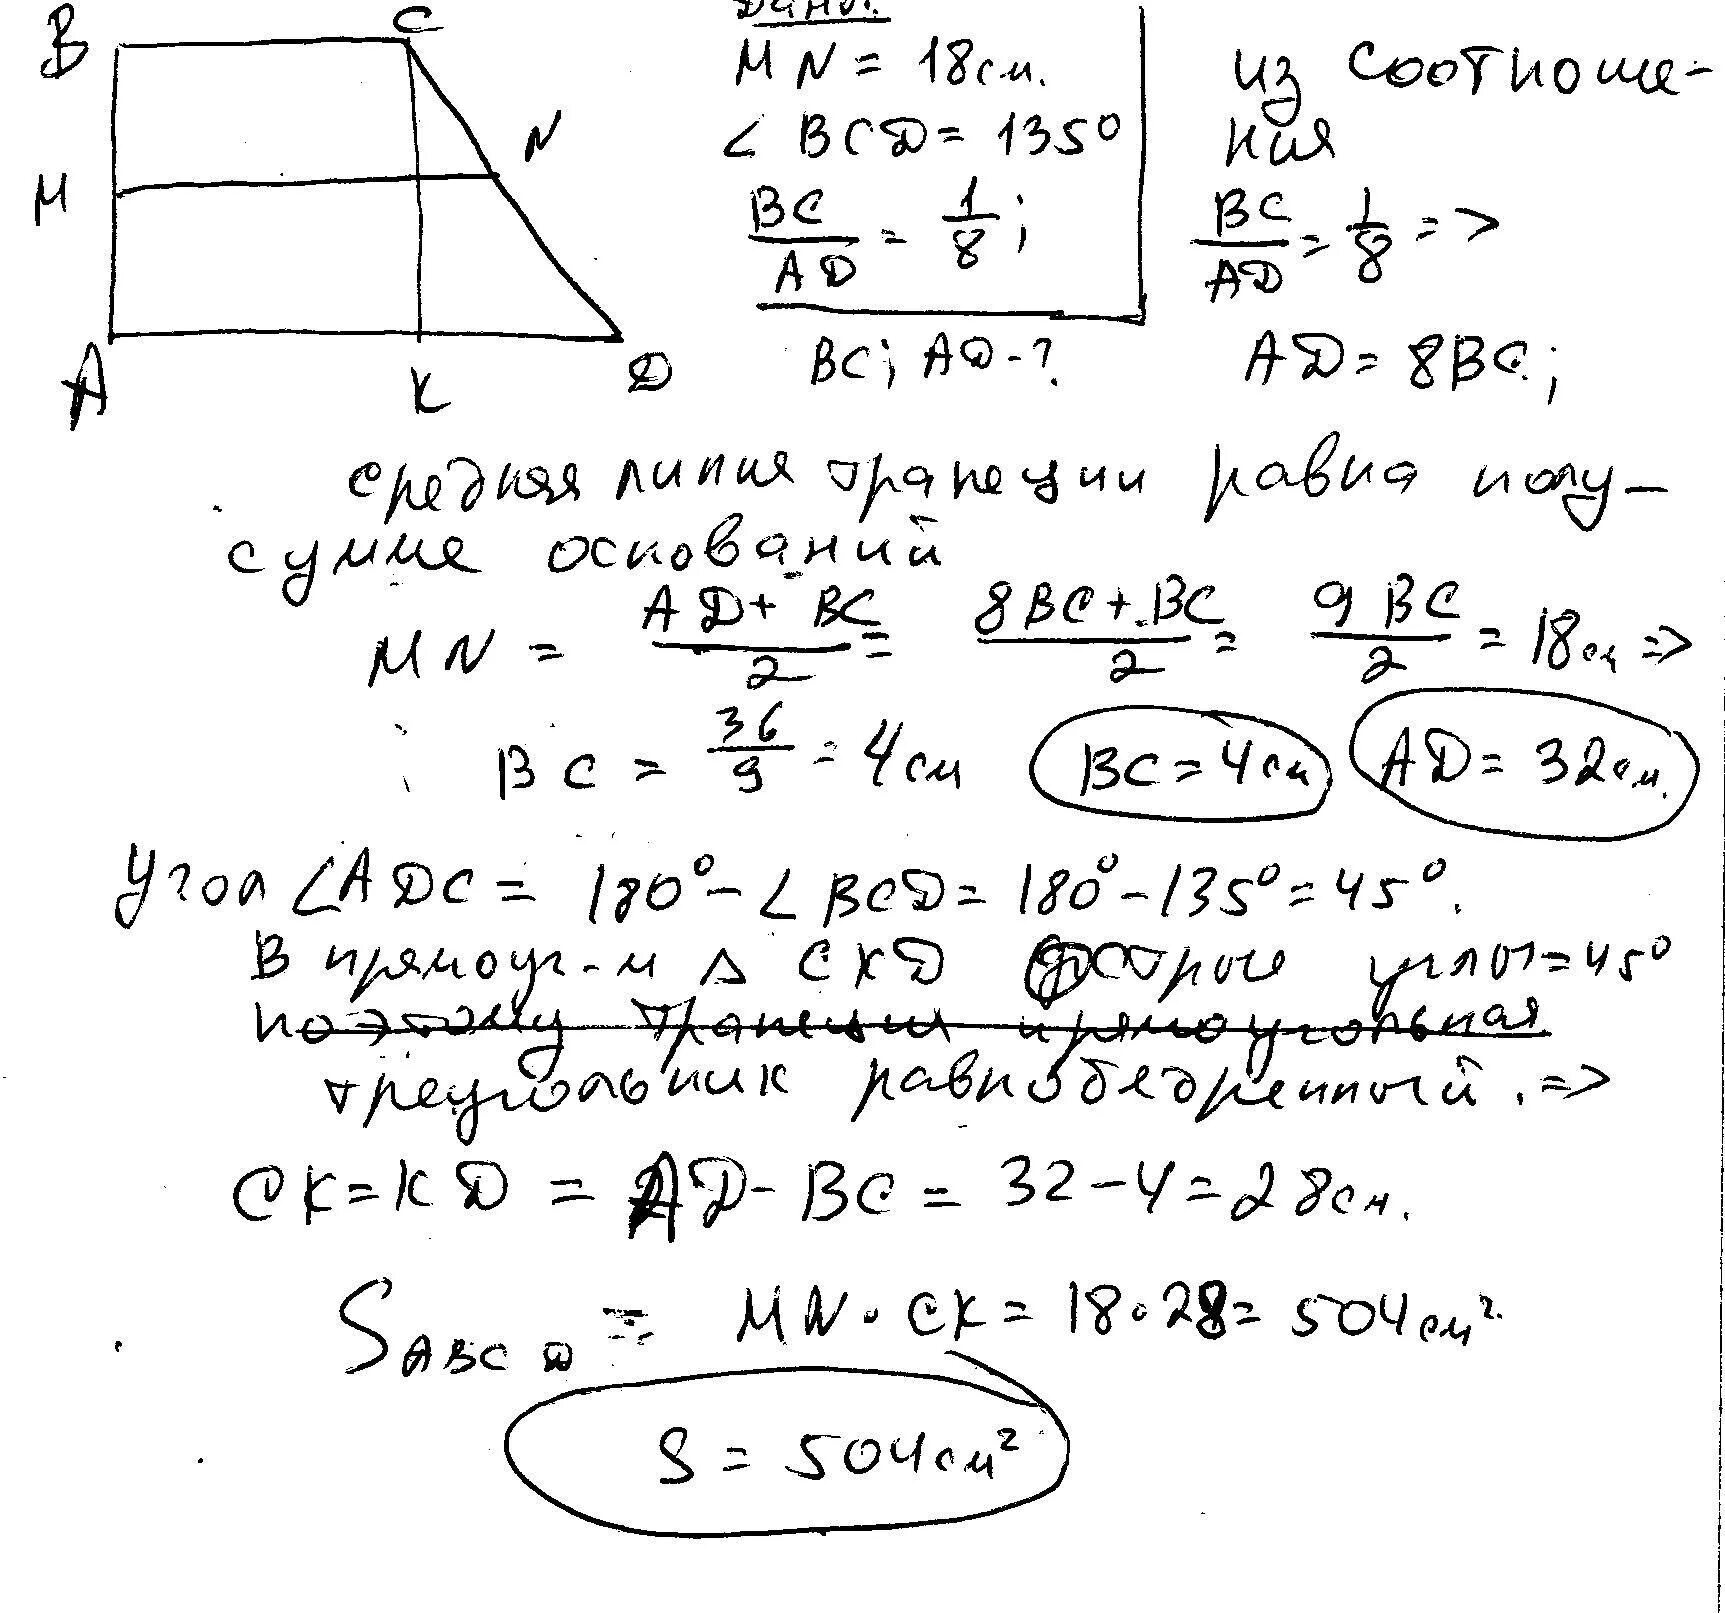 B C
M N
A K D
Дано:
MN = 18см.
∠ BCD = 135°
BC/AD = 1/8;
BC; AD - ?
из соотноше-
ния
BC/AD = 1/8 =>
AD = 8BC;
средняя линия трапеции равна полу-
сумме оснований
MN = (AD + BC)/2 = (8BC + BC)/2 = 9BC/2 = 18см =>
BC = 36/9 = 4см BC = 4см AD = 32см.
Угол ∠ADC = 180° - ∠BCD = 180° - 135° = 45°.
В прямоуг-м △ CKD острые углы = 45°
поэтому трапеция прямоугольная
треугольник равнобедренный. =>
CK = KD = AD - BC = 32 - 4 = 28см.
S ABCD = MN · CK = 18 · 28 = 504см²
S = 504см²